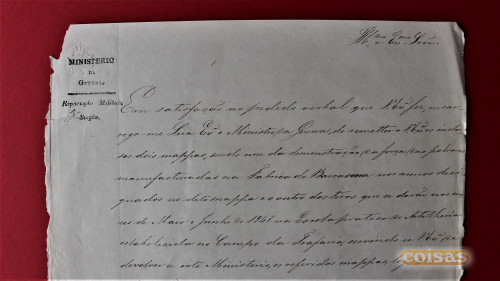 Ill.mo e Ex.mo Snr.
MINISTERIO
DA
GUERRA
Repartição Militar
3ª Secção.
Em satisfação ao pedido verbal que V. Ex.ª fez, encar
rega-me Sua Ex.ª o Ministro da Guerra, de remetter a V. Ex.ª os inclu
sos dois mappas, sendo um da demonstração da força das polvoras
manufacturadas na Fabrica de Barcarena nos annos desi
gnados no dito mappa e o outro dos tiros que se derão nos me
zes de Maio e Junho de 1861 na Escola pratica de Artilheria
estabelecida no Campo da Trafaria, servindo-se V. Ex.ª de
devolver a este Ministerio, os referidos mappas, logo
coisas